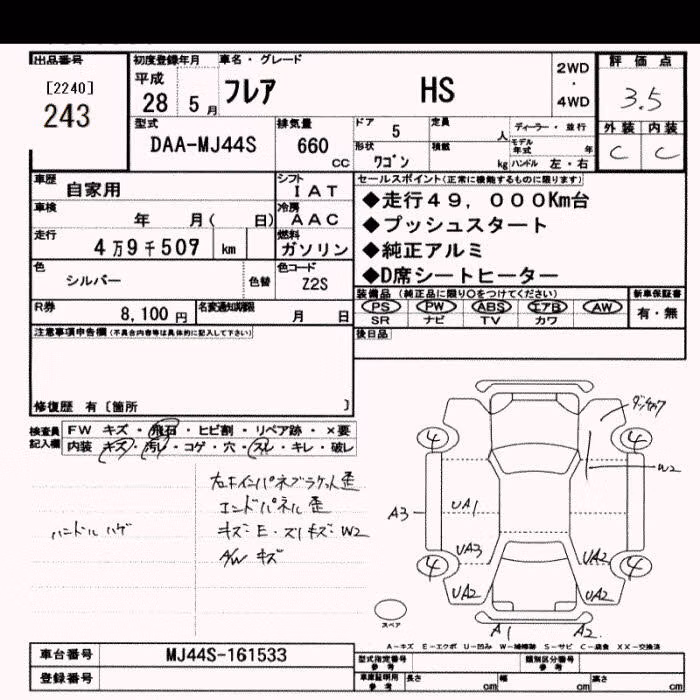 出品番号
[2240]
243
初度登録年月
平成
28 5 月
車名・グレード
フレア HS
2WD
・
4WD
評価点
3.5
外装 内装
C C
型式
DAA-MJ44S
排気量
660
cc
ドア
5
定員
人
形状
ワゴン
積載
kg
ディーラー・並行
モデル年式 年
ハンドル 左・右
車歴
自家用
シフト
IAT
車検
年 月( 日)
冷房
AAC
走行
4万9千507 km
燃料
ガソリン
色
シルバー
色替
色コード
Z2S
R券
8,100 円
名変通知期限
月 日
セールスポイント(正常に機能するものに限ります)
◆走行49,000Km台
◆プッシュスタート
◆純正アルミ
◆D席シートヒーター
装備品 (純正品に限り〇をつけてください)
PS PW ABS エアB AW
SR ナビ TV カワ
新車保証書
有・無
後日品
注意事項申告欄(不具合内容等は具体的に記入して下さい)
修復歴 有〔箇所 〕
検査員
記入欄
FW キズ・飛石・ヒビ割・リペア跡・×要
内装 キズ・汚レ・コゲ・穴・スレ・キレ・破レ
ハンドル ハゲ
右キインパネブラケット歪
エンドパネル 歪
キズ・E・スリキズ・W2
A/W キズ
4
4
W2
A3
UA1
UA3
UA2
4
4
UA2
UA2
A1
A2
スペア
A-キズ E-エクボ U-凹み W-補修跡 S-サビ C-腐食 XX-交換済
車台番号
MJ44S-161533
登録番号
型式指定番号
参考
類別区分番号
参考
車庫証明用
参考
長さ cm
幅 cm
高さ cm